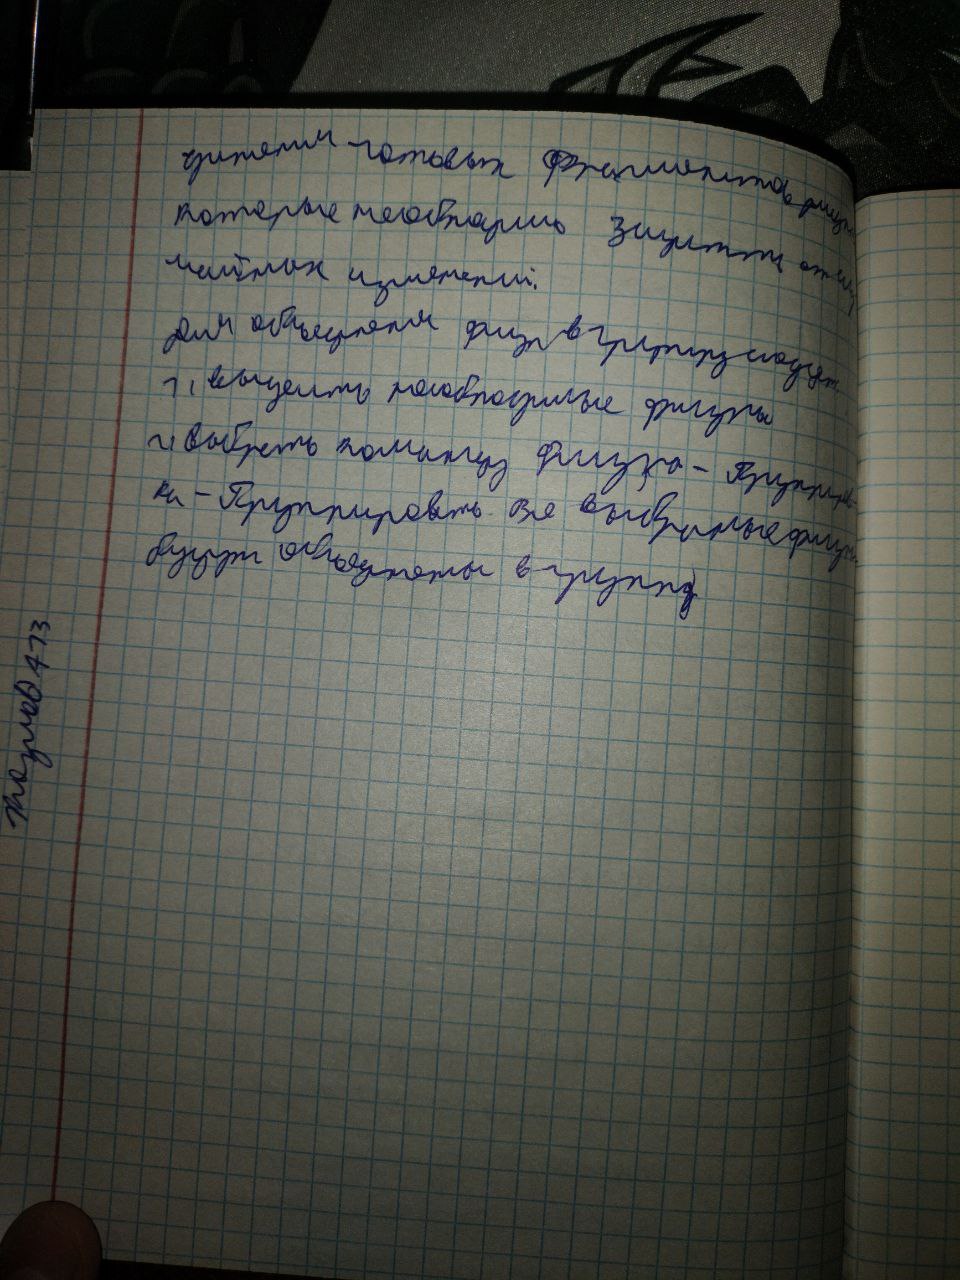 хранения готовых фрагментов фигур
которые необходимо защитить от слу
чайных изменений.
Для объединения фигур в группу следует
1) выделить необходимые фигуры
2) выбрать команду Фигура - Группиров-
ка - Группировать. Все выбранные фигуры
будут объединены в группу
473